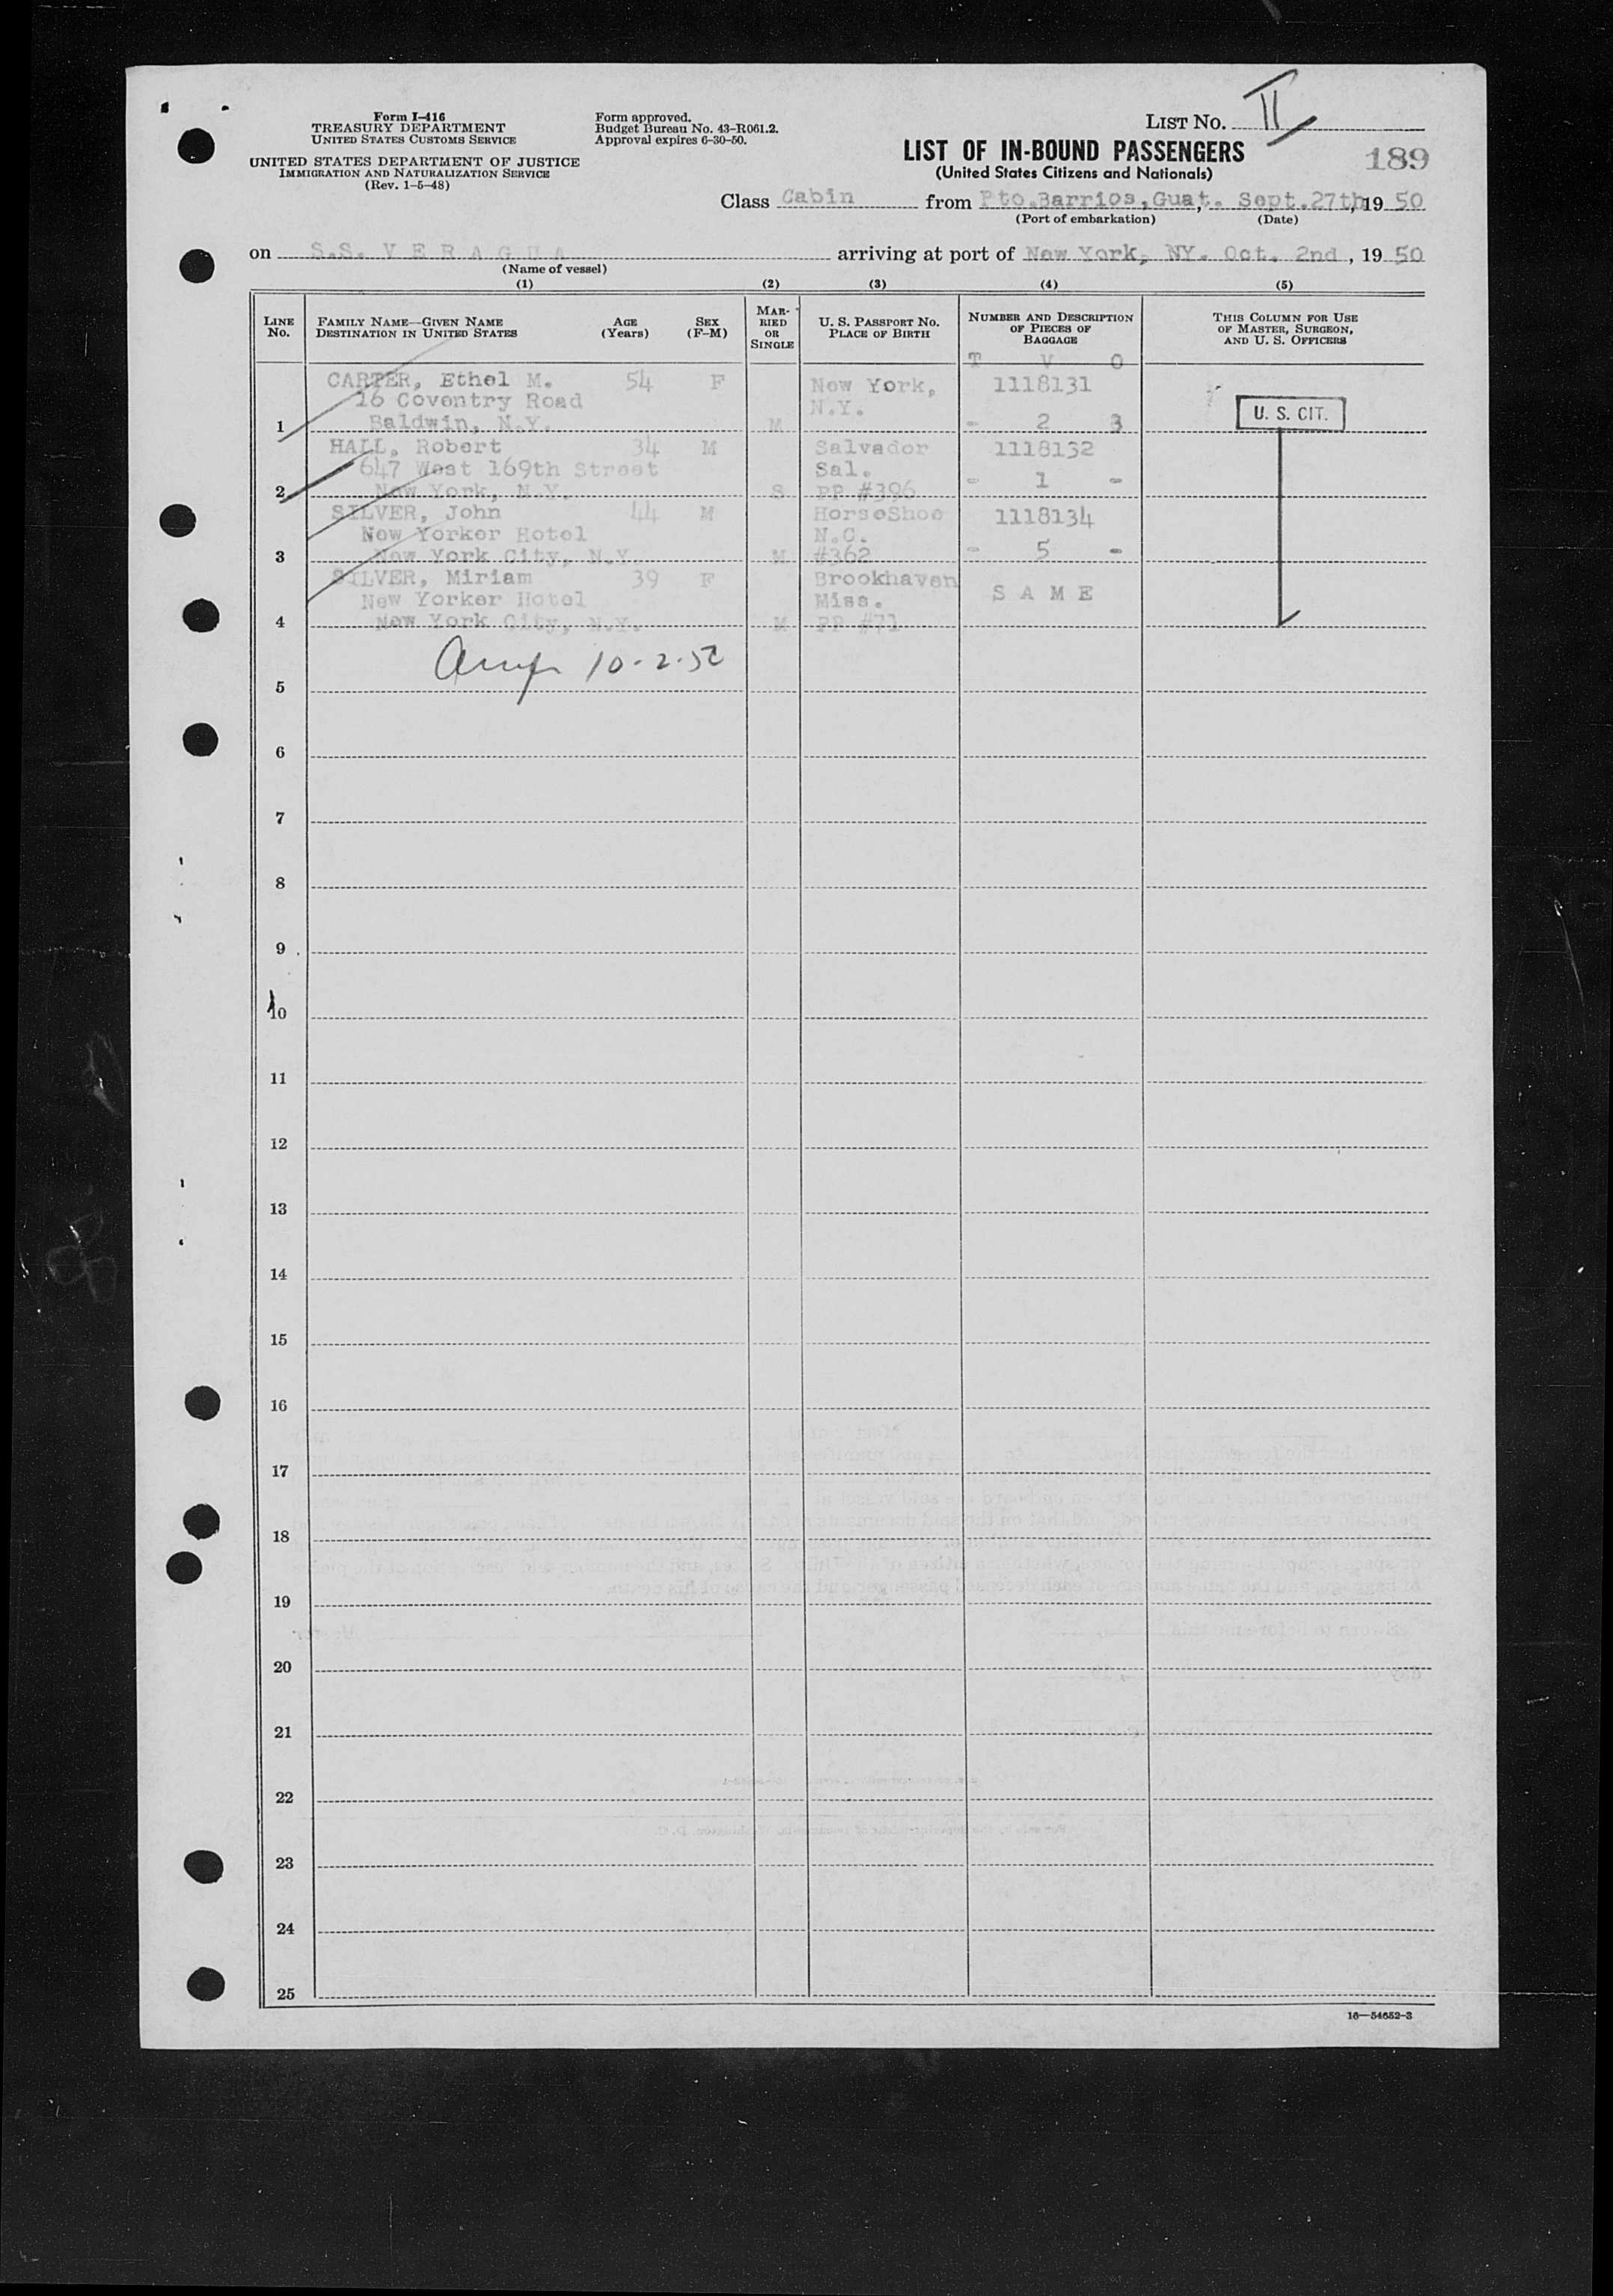 Form I-416
TREASURY DEPARTMENT
UNITED STATES CUSTOMS SERVICE
UNITED STATES DEPARTMENT OF JUSTICE
IMMIGRATION AND NATURALIZATION SERVICE
(Rev. 1-5-48)
Form approved.
Budget Bureau No. 43-R061.2.
Approval expires 6-30-50.
LIST NO. II
LIST OF IN-BOUND PASSENGERS
(United States Citizens and Nationals)
189
Class Cabin from Pto.Barrios,Guat., Sept.27th, 19 50
(Port of embarkation) (Date)
on S.S. V E R A G U A arriving at port of New York, NY. Oct. 2nd, 19 50
(Name of vessel)
(1) (2) (3) (4) (5)
LINE NO.
FAMILY NAME—GIVEN NAME
DESTINATION IN UNITED STATES
AGE (Years)
SEX (F-M)
MARRIED OR SINGLE
U. S. PASSPORT NO.
PLACE OF BIRTH
NUMBER AND DESCRIPTION OF PIECES OF BAGGAGE
THIS COLUMN FOR USE OF MASTER, SURGEON, AND U. S. OFFICERS
T V O
CARTER, Ethel M. 54 F New York, 1118131
16 Coventry Road N.Y.
1 Baldwin, N.Y. M - 2 3
U. S. CIT.
HALL, Robert 34 M Salvador 1118132
647 West 169th Street Sal.
2 New York, N.Y. S PP #396 - 1 -
SILVER, John 44 M HorseShoe 1118134
New Yorker Hotel N.C.
3 New York City, N.Y M #362 - 5 -
SILVER, Miriam 39 F Brookhaven S A M E
New Yorker Hotel Miss.
4 New York City, N.Y. M PP #71
10-2-50
5
6
7
8
9
10
11
12
13
14
15
16
17
18
19
20
21
22
23
24
25
16—54652-3